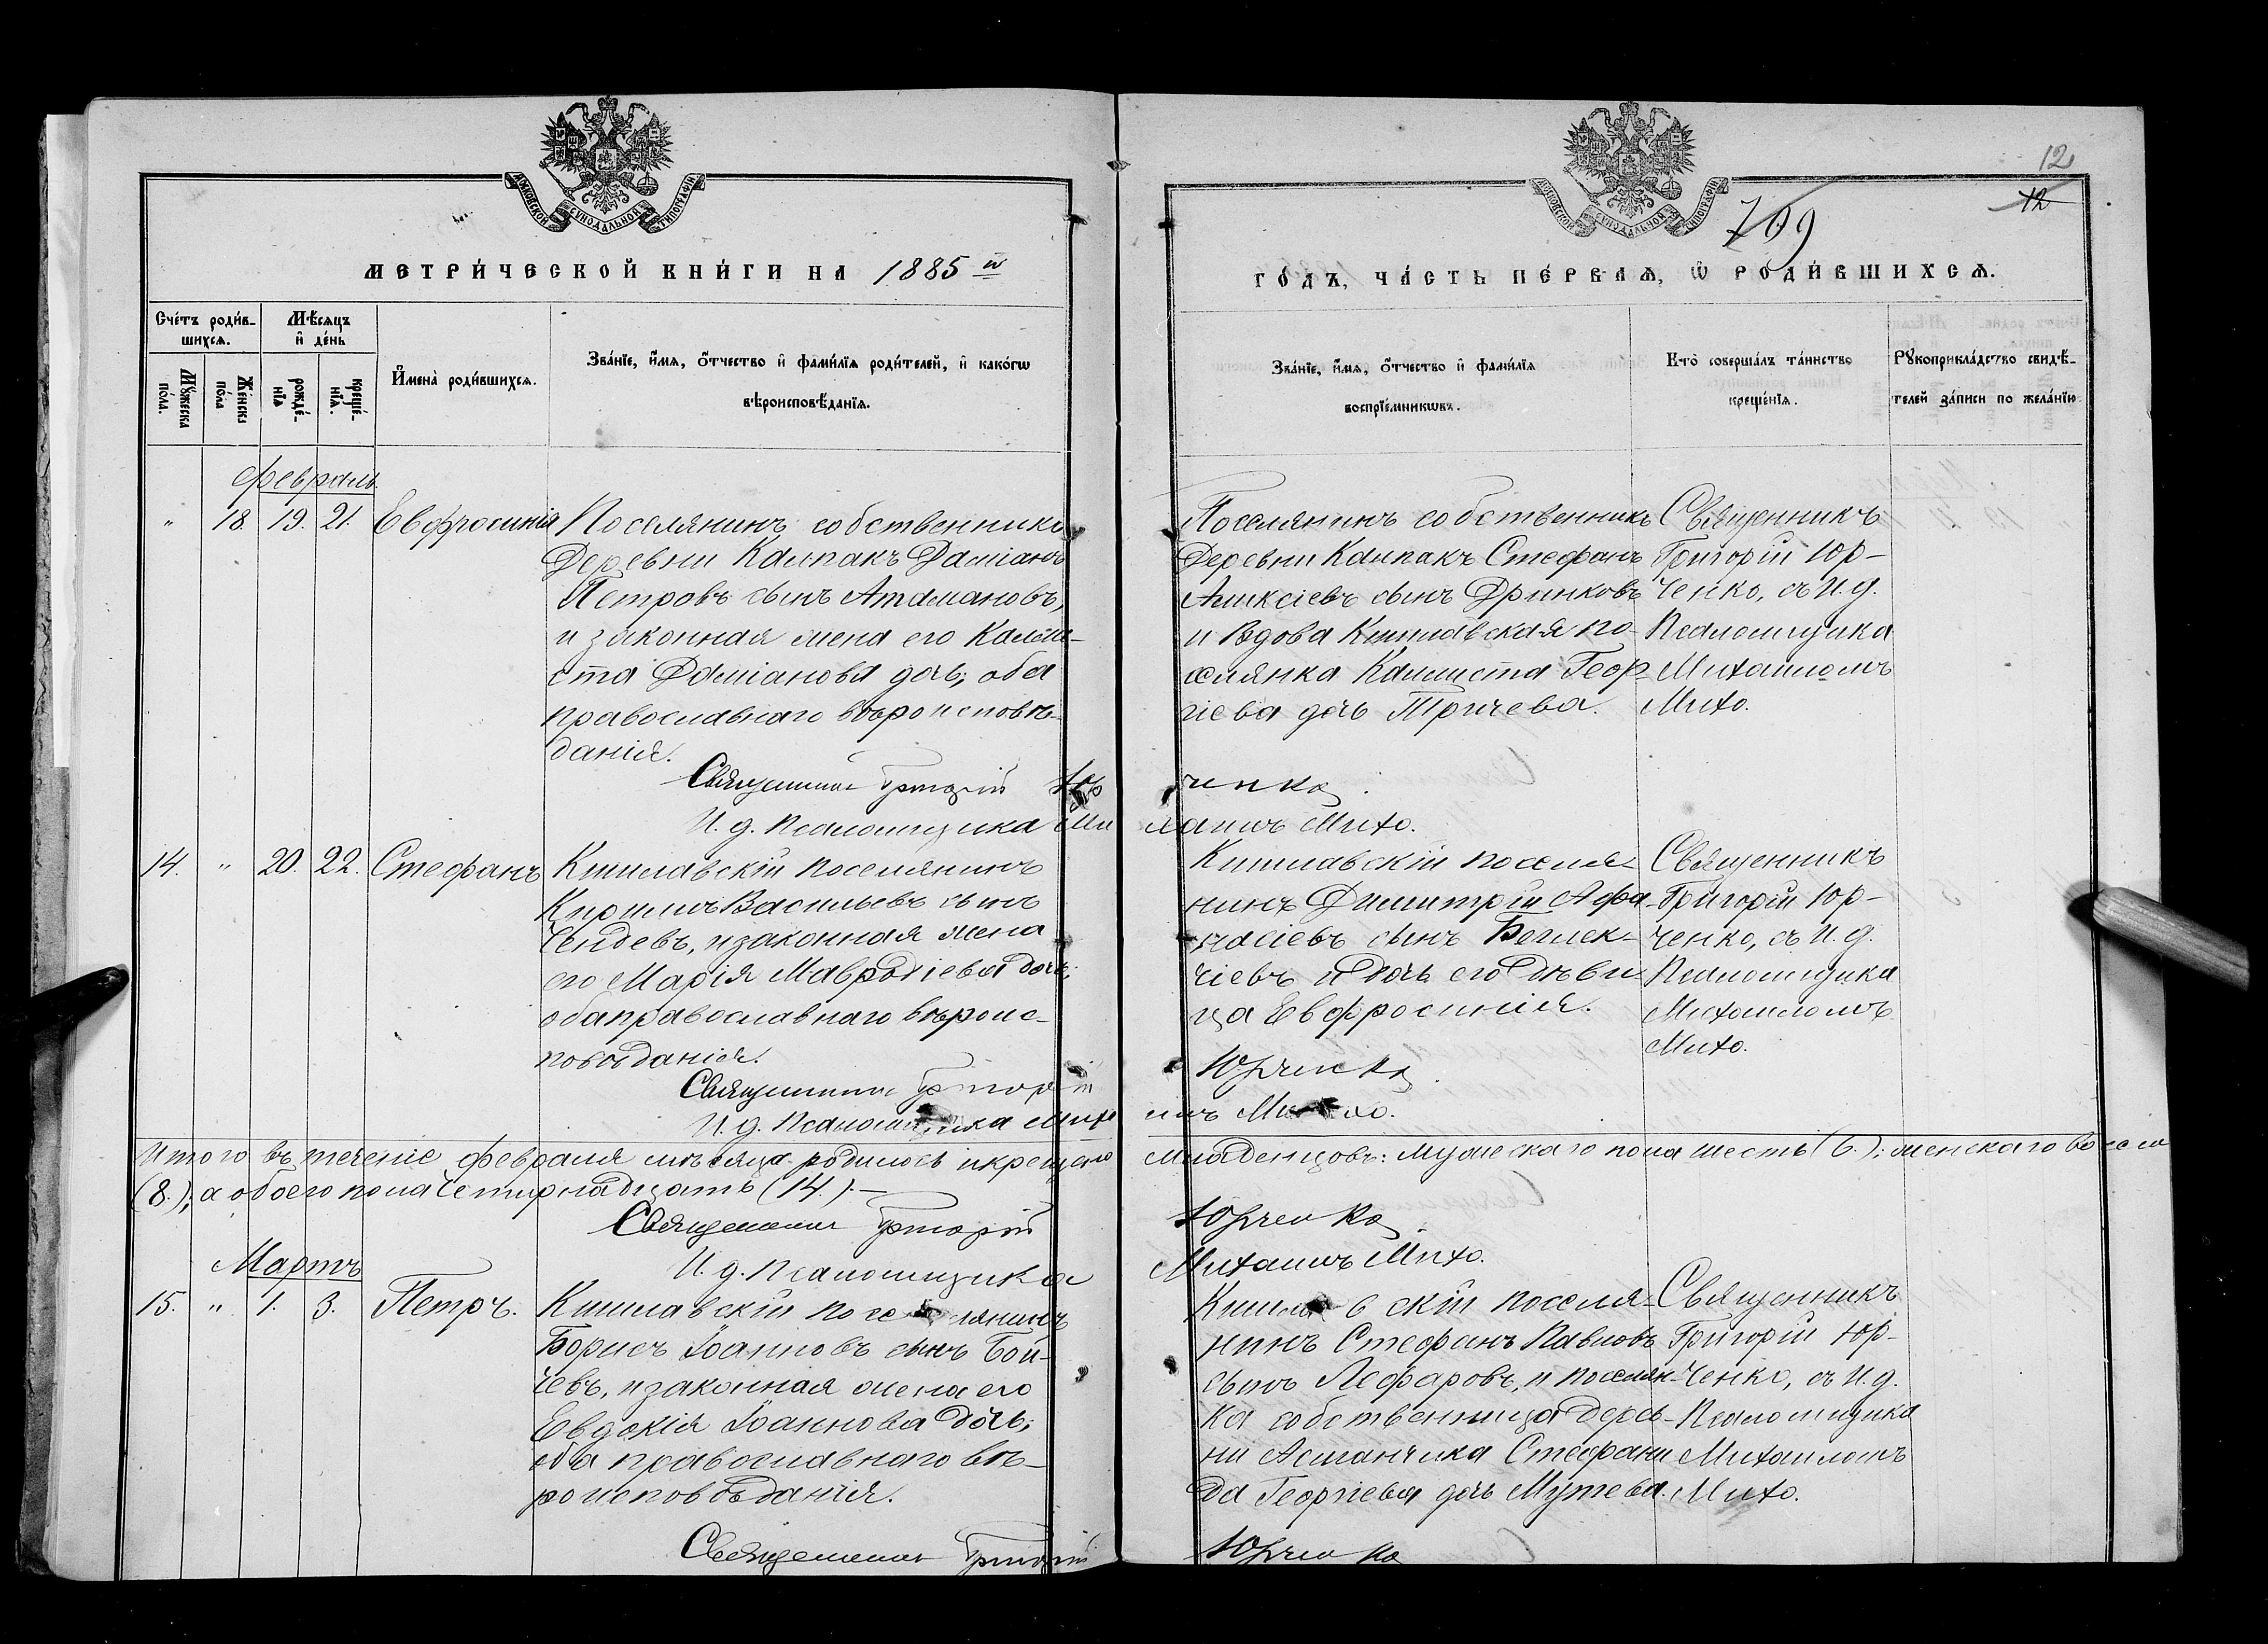 МОСКОВСКОЙ СУНОДАЛЬНОЙ ТИПОГРАФІИ
МЕТРИ́ЧЕСКОЙ КНИ́ГИ НА 1885 й
Сче́тъ роди́в-
шихсѧ.
Мѣ́сѧцъ
и҆ де́нь
Мꙋ́жеска
по́ла.
Же́нска
по́ла
рожде́-
нїѧ
креще́-
нїѧ.
И҆мена̀ роди́вшихсѧ.
Зва́нїе, и҆́мѧ, ѻ҆́тчество и҆ фами́лїѧ роди́телей, и҆ како́гѡ
вѣроисповѣ́данїѧ.
Февраль.
" 18. 19. 21. Евфросинія
Поселянинъ собственникъ
Деревни Калпакъ Даміанъ
Петровъ сынъ Атамановъ,
и законная жена его Кали-
ста Даміанова дочь; оба
православнаго вѣроисповѣ-
данія.
Священникъ Григорій Юр
И. д. Псаломщика Ми
14. " 20. 22. Стефанъ
Кишлавскій поселянинъ
Кириллъ Васильевъ сынъ
Чендевъ, и законная жена
его Марія Мавродіева дочь;
оба православнаго вѣроис-
повѣданія.
Священникъ Григорій
И. д. Псаломщика Миха
Итого въ теченіе февраля мѣсяца родилось и крещено
(8.); а обоего пола четырнадцать (14.).—
Священникъ Григорій
И. д. Псаломщика
Мартъ
15. " 1. 3. Петръ.
Кишлавскій поселянинъ
Борисъ Іоанновъ сынъ Бой-
чевъ, и законная жена его
Евдокія Іоаннова дочь;
оба православнаго вѣ-
роисповѣданія.
Священникъ Григорій
12
12
709
МОСКОВСКОЙ СУНОДАЛЬНОЙ ТИПОГРАФІИ
ГО́ДЪ, ЧА́СТЬ ПЕ́РВАѦ, Ѿ РОДИ́ВШИХСѦ.
Зва́нїе, и҆́мѧ, ѻ҆́тчество и҆ фами́лїѧ
воспрїе́мникѡвъ.
Кто̀ соверша́лъ та́инство
креще́нїѧ.
Рꙋкоприкла́дство свидѣ́-
телей за́писи по жела́нїю
Поселянинъ собственникъ
Деревни Калпакъ Стефанъ
Алексіевъ сынъ Дринковъ
и вдова Кишлавская по-
селянка Калиста Геор-
гіева дочь Тричева.
Священникъ
Григорій Юр-
ченко, съ И. д.
Псаломщика
Михаиломъ
Михо.
ченко.
хаилъ Михо.
Кишлавскій поселя-
нинъ Димитрій Афа-
насіевъ сынъ Беглек-
чіевъ и дочь его дѣви-
ца Евфросинія.
Священникъ
Григорій Юр-
ченко, съ И. д.
Псаломщика
Михаиломъ
Михо.
Юрченко.
илъ Михо.
младенцовъ: мужескаго пола шесть (6.); женскаго восемь
Юрченко.
Михаилъ Михо.
Кишлавскій поселя-
нинъ Стефанъ Павловъ
сынъ Лефаровъ, и поселян-
ка собственница дерев-
ни Асланчика Стефани-
да Георгіева дочь Мутева.
Священникъ
Григорій Юр-
ченко, съ И. д.
Псаломщика
Михаиломъ
Михо.
Юрченко